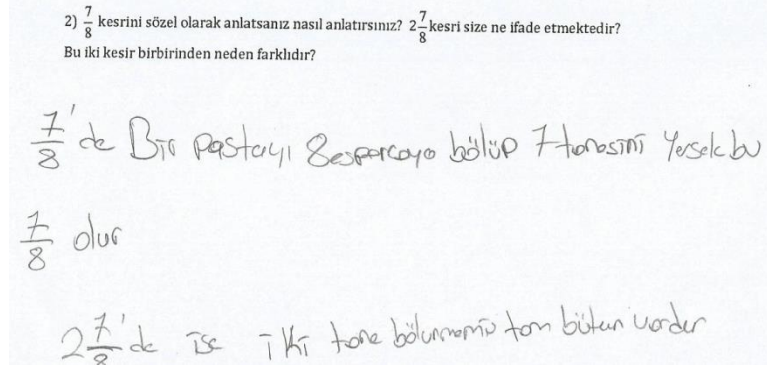 2) 7/8 kesrini sözel olarak anlatsanız nasıl anlatırsınız? 2 7/8 kesri size ne ifade etmektedir?
Bu iki kesir birbirinden neden farklıdır?
7/8'de Bir pastayı 8 eş parçaya bölüp 7 tanesini yersek bu
7/8 olur
2 7/8'de ise iki tane bölünmemiş tam bütün vardır